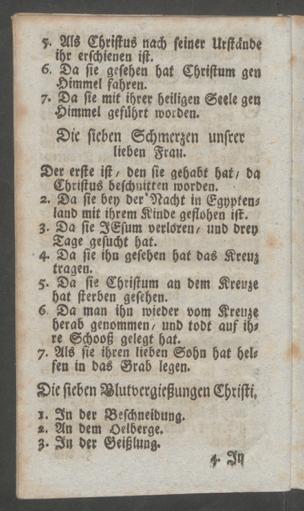 5. Als Christus nach seiner Urstände
ihr erschienen ist.
6. Da sie gesehen hat Christum gen
Himmel fahren.
7. Da sie mit ihrer heiligen Seele gen
Himmel geführt worden.
Die sieben Schmerzen unsrer
lieben Frau.
Der erste ist/ den sie gehabt hat/ da
Christus beschnitten worden.
2. Da sie bey der Nacht in Egypten-
land mit ihrem Kinde geflohen ist.
3. Da sie JEsum verloren/ und drey
Tage gesucht hat.
4. Da sie ihn gesehen hat das Kreuz
tragen.
5. Da sie Christum an dem Kreuze
hat sterben gesehen.
6 Da man ihn wieder vom Kreuze
herab genommen/ und todt auf ih-
re Schooß gelegt hat.
7. Als sie ihren lieben Sohn hat hel-
fen in das Grab legen.
Die sieben Blutvergießungen Christi.
1. In der Beschneidung.
2. An dem Oelberge.
3. In der Geißlung.
4. In